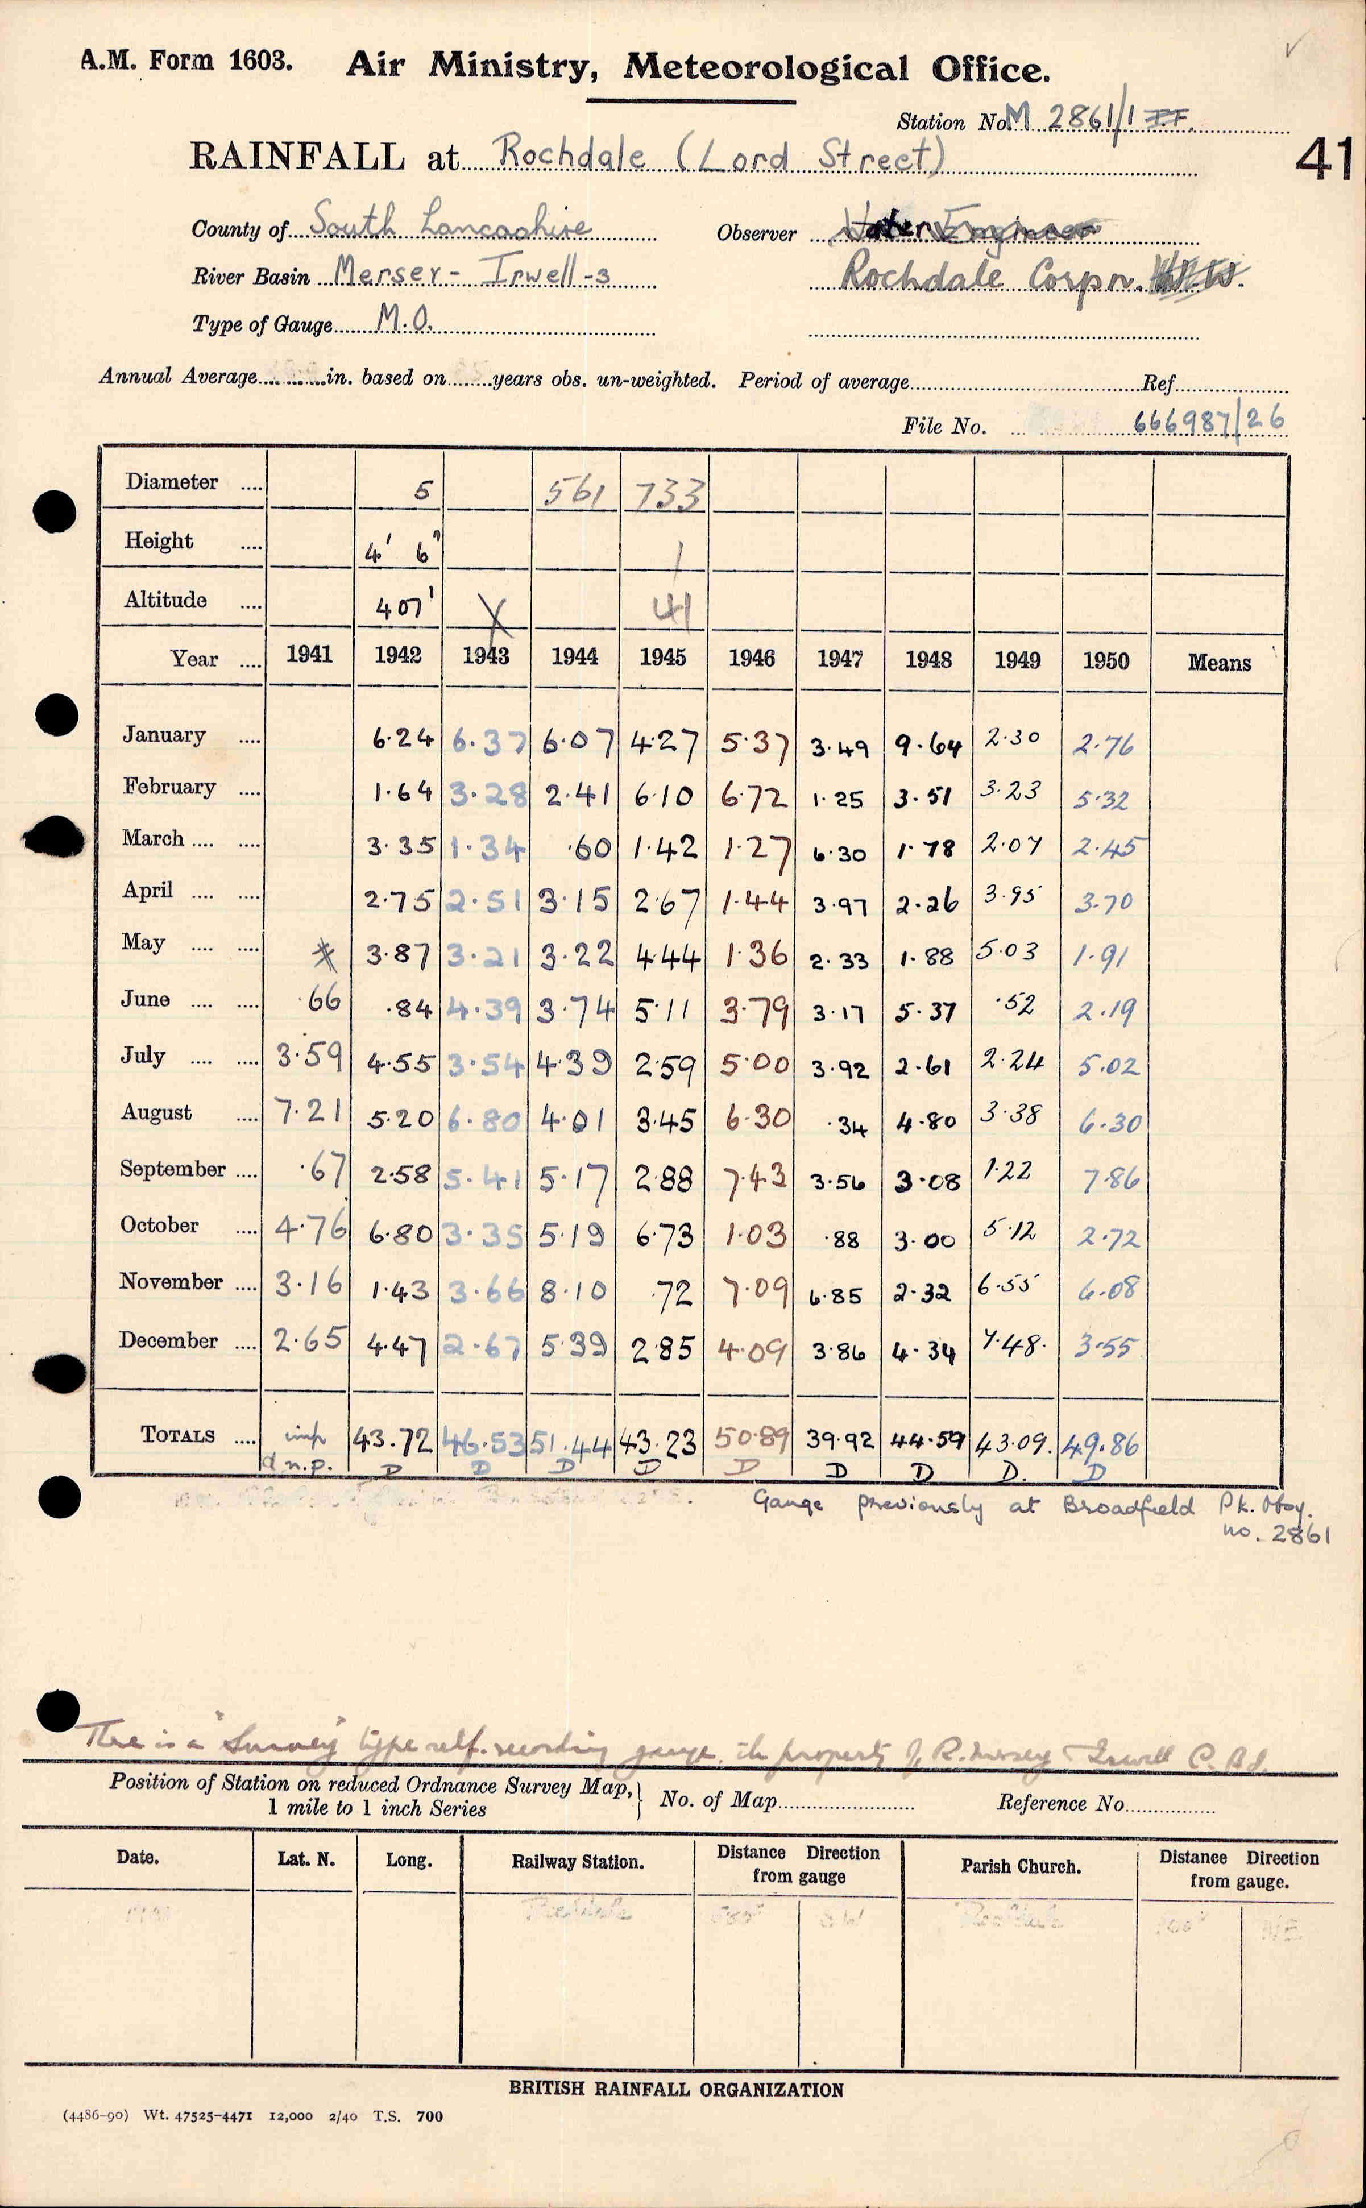 A.M. Form 1603. Air Ministry, Meteorological Office.
Station No. M 2861/1
RAINFALL at Rochdale (Lord Street) 41
County of South Lancashire Observer Water Engineer
River Basin Merser - Irwell - 3 Rochdale Corpn. W.W.
Type of Gauge M.O.
Annual Average in. based on years obs. un-weighted. Period of average Ref
File No. 666987/26
Diameter .... 5 561 733
Height .... 4' 6" 1
Altitude .... 407' X 41
Year .... 1941 1942 1943 1944 1945 1946 1947 1948 1949 1950 Means
January .... 6.24 6.37 6.07 4.27 5.37 3.49 9.64 2.30 2.76
February .... 1.64 3.28 2.41 6.10 6.72 1.25 3.51 3.23 5.32
March .... .... 3.35 1.34 .60 1.42 1.27 6.30 1.78 2.07 2.45
April .... .... 2.75 2.51 3.15 2.67 1.44 3.97 2.26 3.95 3.70
May .... .... * 3.87 3.21 3.22 4.44 1.36 2.33 1.88 5.03 1.91
June .... .... .66 .84 4.39 3.74 5.11 3.79 3.17 5.37 .52 2.19
July .... .... 3.59 4.55 3.54 4.39 2.59 5.00 3.92 2.61 2.24 5.02
August .... 7.21 5.20 6.80 4.01 3.45 6.30 .34 4.80 3.38 6.30
September .... .67 2.58 5.41 5.17 2.88 7.43 3.56 3.08 1.22 7.86
October .... 4.76 6.80 3.35 5.19 6.73 1.03 .88 3.00 5.12 2.72
November .... 3.16 1.43 3.66 8.10 .72 7.09 6.85 2.32 6.55 6.08
December .... 2.65 4.47 2.67 5.39 2.85 4.09 3.86 4.34 7.48. 3.55
TOTALS .... imp 43.72 46.53 51.44 43.23 50.89 39.92 44.59 43.09. 49.86
d.n.p. D D D D D D D D. D
Gauge previously at Broadfield Pk.
no. 2861
There is a "Survey" type self-recording gauge, the property of R. Mersey & Irwell C. Bd.
Position of Station on reduced Ordnance Survey Map, } No. of Map Reference No.
1 mile to 1 inch Series
Date. Lat. N. Long. Railway Station. Distance Direction from gauge Parish Church. Distance Direction from gauge.
Rochdale SW Rochdale NE
BRITISH RAINFALL ORGANIZATION
(4486-90) Wt. 47525-4471 12,000 2/40 T.S. 700